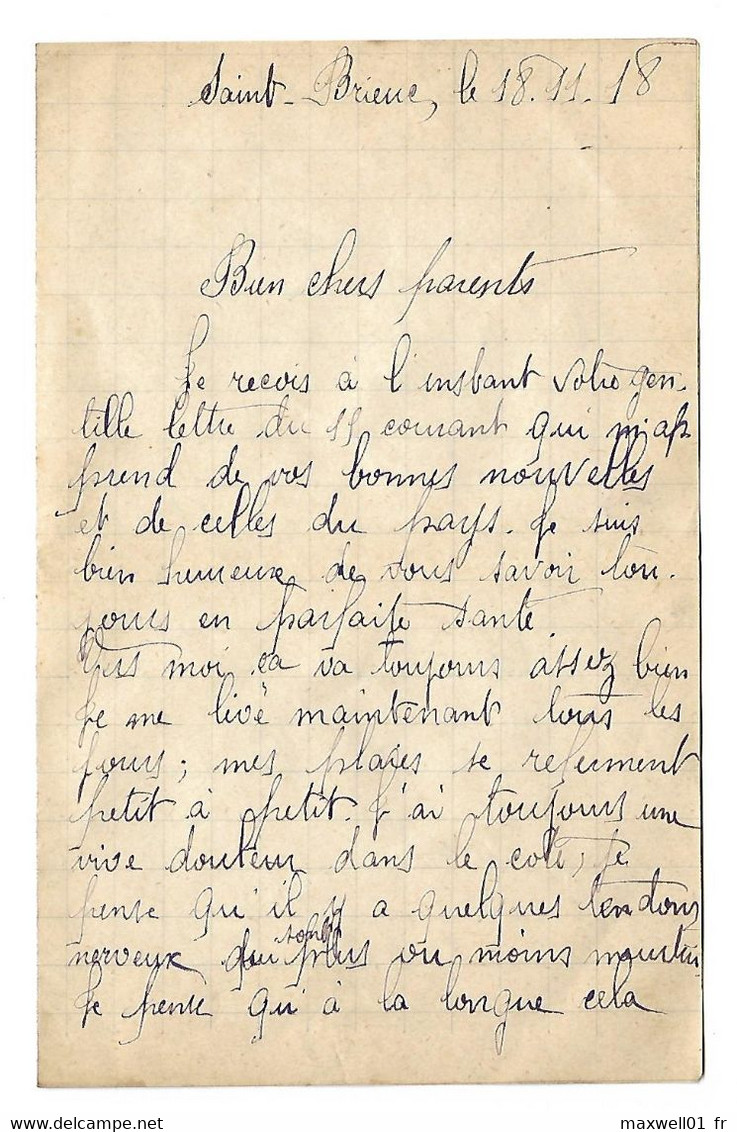 Saint-Brieuc, le 18.11.18
Bien chers parents
Je recois à l'instant votre gen-
tille lettre du 11 courant qui m'ap
prend de vos bonnes nouvelles
et de celles du pays. Je suis
bien heureux de vous savoir tou-
jours en parfaite santé.
moi ça va toujours assez bien
Je me lève maintenant tous les
jours; mes plaies se referment
petit à petit. J'ai toujours une
vive douleur dans le coté; Je
pense qu'il y a quelques tendons
nerveux qui sont plus ou moins meurtri
Je pense qu'à la longue cela
maxwell01 fr